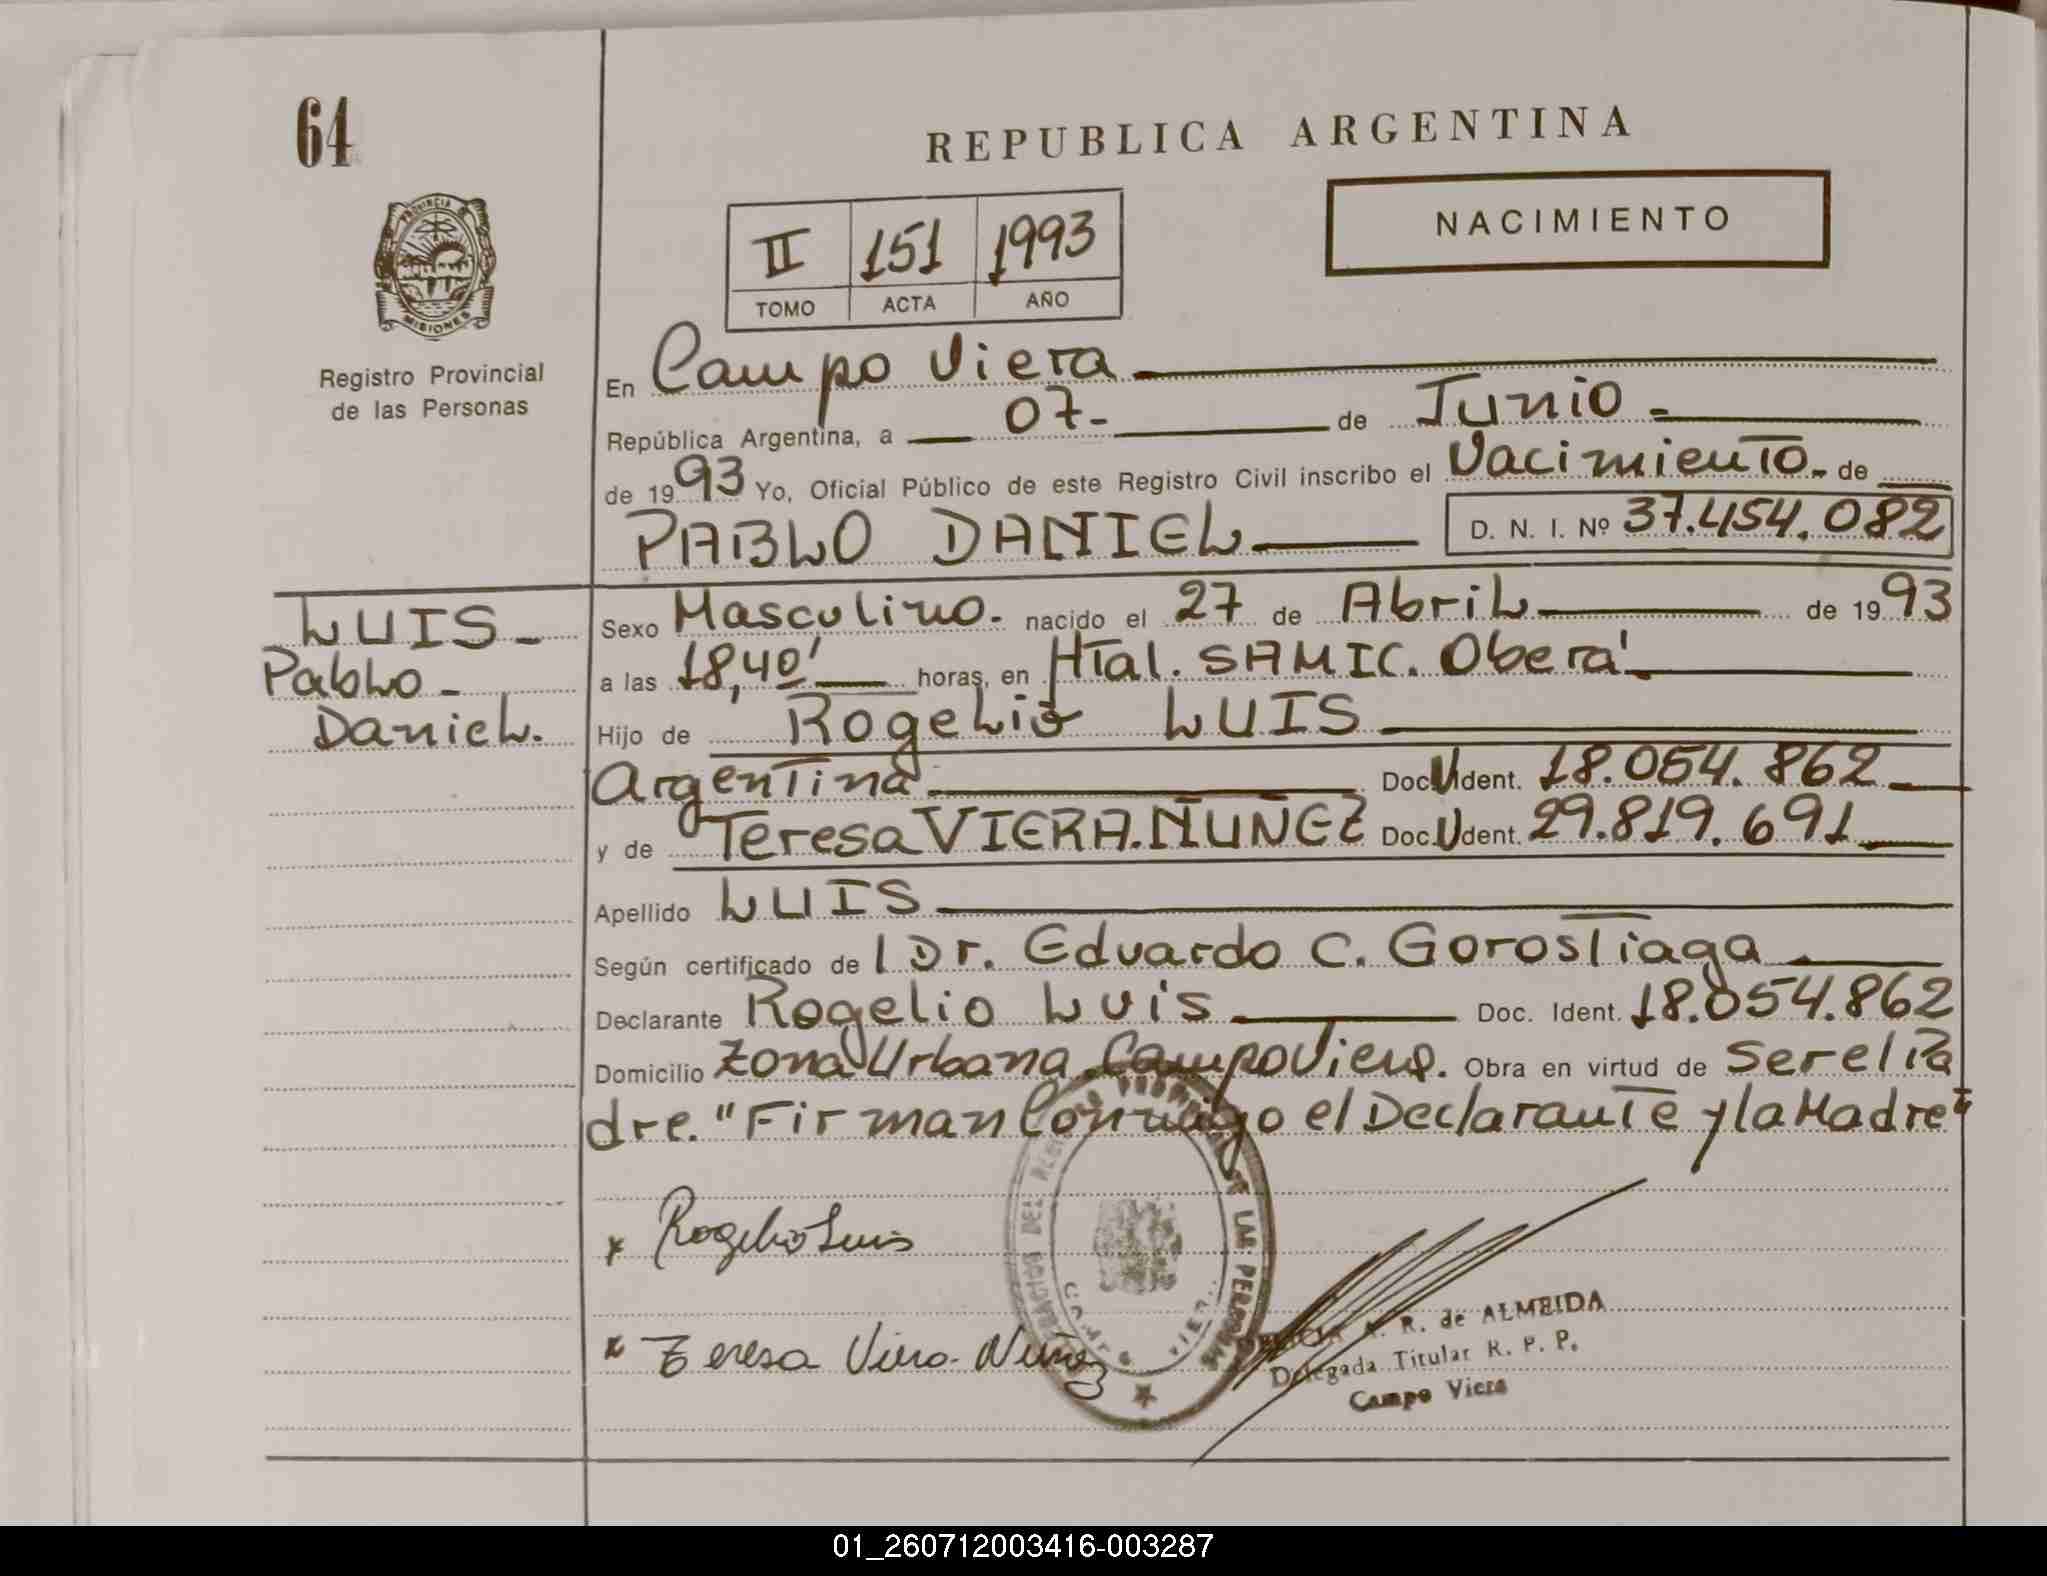 64
REPUBLICA ARGENTINA
NACIMIENTO
II 151 1993
TOMO ACTA AÑO
PROVINCIA DE MISIONES
Registro Provincial
de las Personas
En Campo Viera
República Argentina, a 07- de Junio -
de 1993 Yo, Oficial Público de este Registro Civil inscribo el Nacimiento. de
PABLO DANIEL D. N. I. Nº 37.454.082
LUIS -
Pablo -
Daniel.
Sexo Masculino. nacido el 27 de Abril de 1993
a las 18,40' horas, en Htal. SAMIC. Oberá
Hijo de Rogelio LUIS
Argentina Doc. Ident. 18.054.862
y de Teresa VIERA.NUÑEZ Doc. Ident. 29.819.691
Apellido LUIS
Según certificado de l Dr. Eduardo C. Gorostiaga
Declarante Rogelio Luis Doc. Ident. 18.054.862
Domicilio Zona Urbana. Campo Viera. Obra en virtud de ser el Pa
dre. "Firman Conmigo el Declarante y la Madre"
x Rogelio Luis
x Teresa Viera Nuñez
DEL LAS PERSONAS
R. de ALMEIDA
Delegada Titular R. P. P.
Campo Viera
01_260712003416-003287